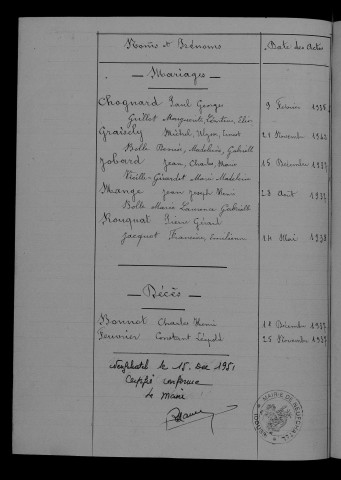 Noms et Prénoms Date des Actes
- Mariages -
Chognard Paul Georges 9 Février 1938
Guillot Marguerite,
Graizely Michel, Ulysse, Ernest 21 Novembre
Bolle Denise, Madeleine, Gabrielle
Jobard Jean, Charles, Marie 15 Décembre 1937
Vieille-Girardet Marie Madeleine
Mange Jean Joseph Henri 28 Août 1937
Bolle Marie Laurence Gabrielle
Rouquat Pierre Gérard
Jacquot Francine, Emilienne 24 Mai 1938
- Décès -
Bonnot Charles Henri 11 Décembre 1937
Constant Léopold 25 Novembre 1937
le 15 Dec 1951
conforme
Le Maire
MAIRIE DE